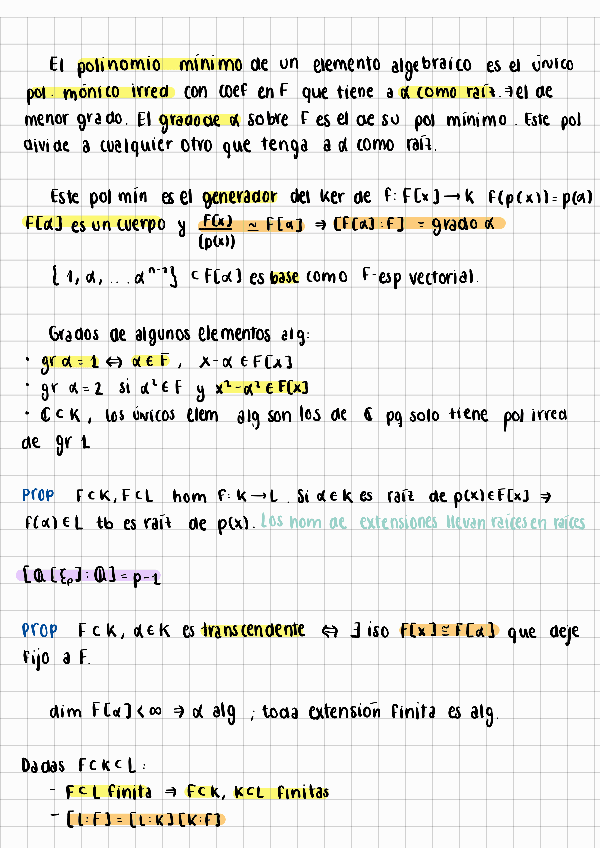 El polinomio mínimo de un elemento algebraico es el único
pol. mónico irred con coef en F que tiene a α como raíz.⇒el de
menor grado. El grado de α sobre F es el de su pol mínimo. Este pol
divide a cualquier otro que tenga a α como raíz.
Este pol mín es el generador del ker de f: F[x] → K f(p(x)) = p(α)
F[α] es un cuerpo y F[x]/(p(x)) ≃ F[α] ⇒ [F[α]:F] = grado α
{1, α, ... αⁿ⁻¹} ⊂ F[α] es base como F-esp vectorial.
Grados de algunos elementos alg:
· gr α = 1 ⇔ α ∈ F, x-α ∈ F[x]
· gr α = 2 si α² ∈ F y x²-α² ∈ F[x]
· ℂ ⊂ K, los únicos elem alg son los de ℂ pq solo tiene pol irred
de gr 1
Prop F⊂K, F⊂L hom f: K → L. Si α∈K es raíz de p(x)∈F[x] ⇒
f(α)∈L tb es raíz de p(x). Los hom de extensiones llevan raíces en raíces
[ℚ[ξₚ]:ℚ] = p-1
Prop F⊂K, α∈K es transcendente ⇔ ∃ iso F[x]≅F[α] que deje
fijo a F.
dim F[α] < ∞ ⇒ α alg ; toda extensión finita es alg.
Dadas F⊂K⊂L:
- F⊂L finita ⇒ F⊂K, K⊂L finitas
- [L:F] = [L:K][K:F]